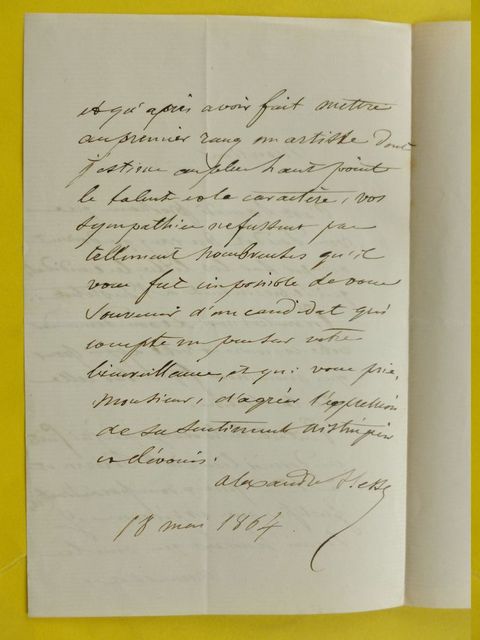 et qu'après avoir fait mettre
au premier rang un artiste dont
j'estime au plus haut point
le talent et le caractère, vos
sympathies ne fussent pas
tellement nombreuses qu'il
vous fut impossible de vous
souvenir d'un candidat qui
compte un peu sur votre
bienveillance, et qui vous prie,
Monsieur, d'agréer l'expression
de ses sentiments distingués
et dévoués.
Alexandre Hesse
18 mai 1864.